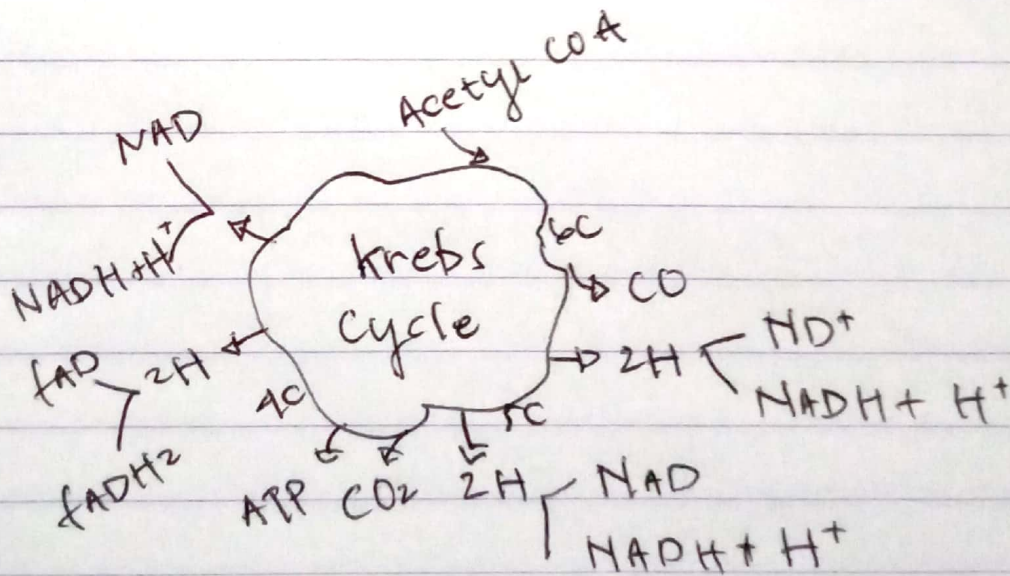 Acetyl COA
NAD
NADH+H+
Krebs
Cycle
6C
CO
2H
ND+
NADH + H+
fAD
2H
fADH2
4C
5C
ATP
CO2
2H
NAD
NADH + H+